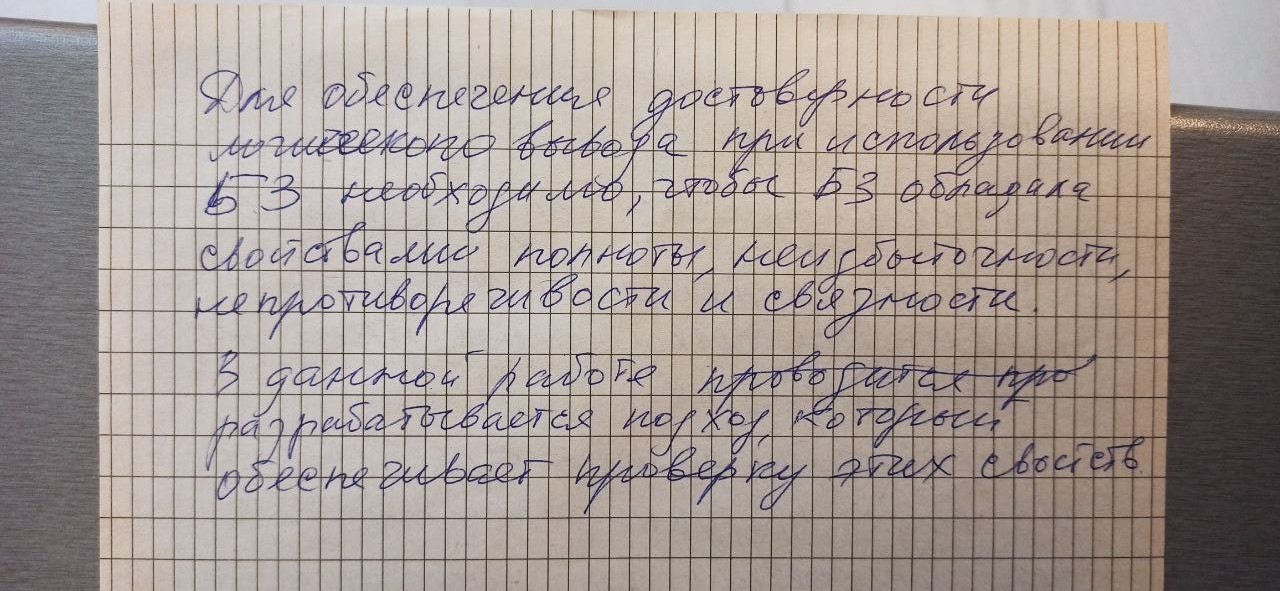 Для обеспечения достоверности
логического вывода при использовании
БЗ необходимо, чтобы БЗ обладала
свойствами полноты, неизбыточности,
непротиворечивости и связности.
В данной работе проводится про
разрабатывается подход, который
обеспечивает проверку этих свойств.